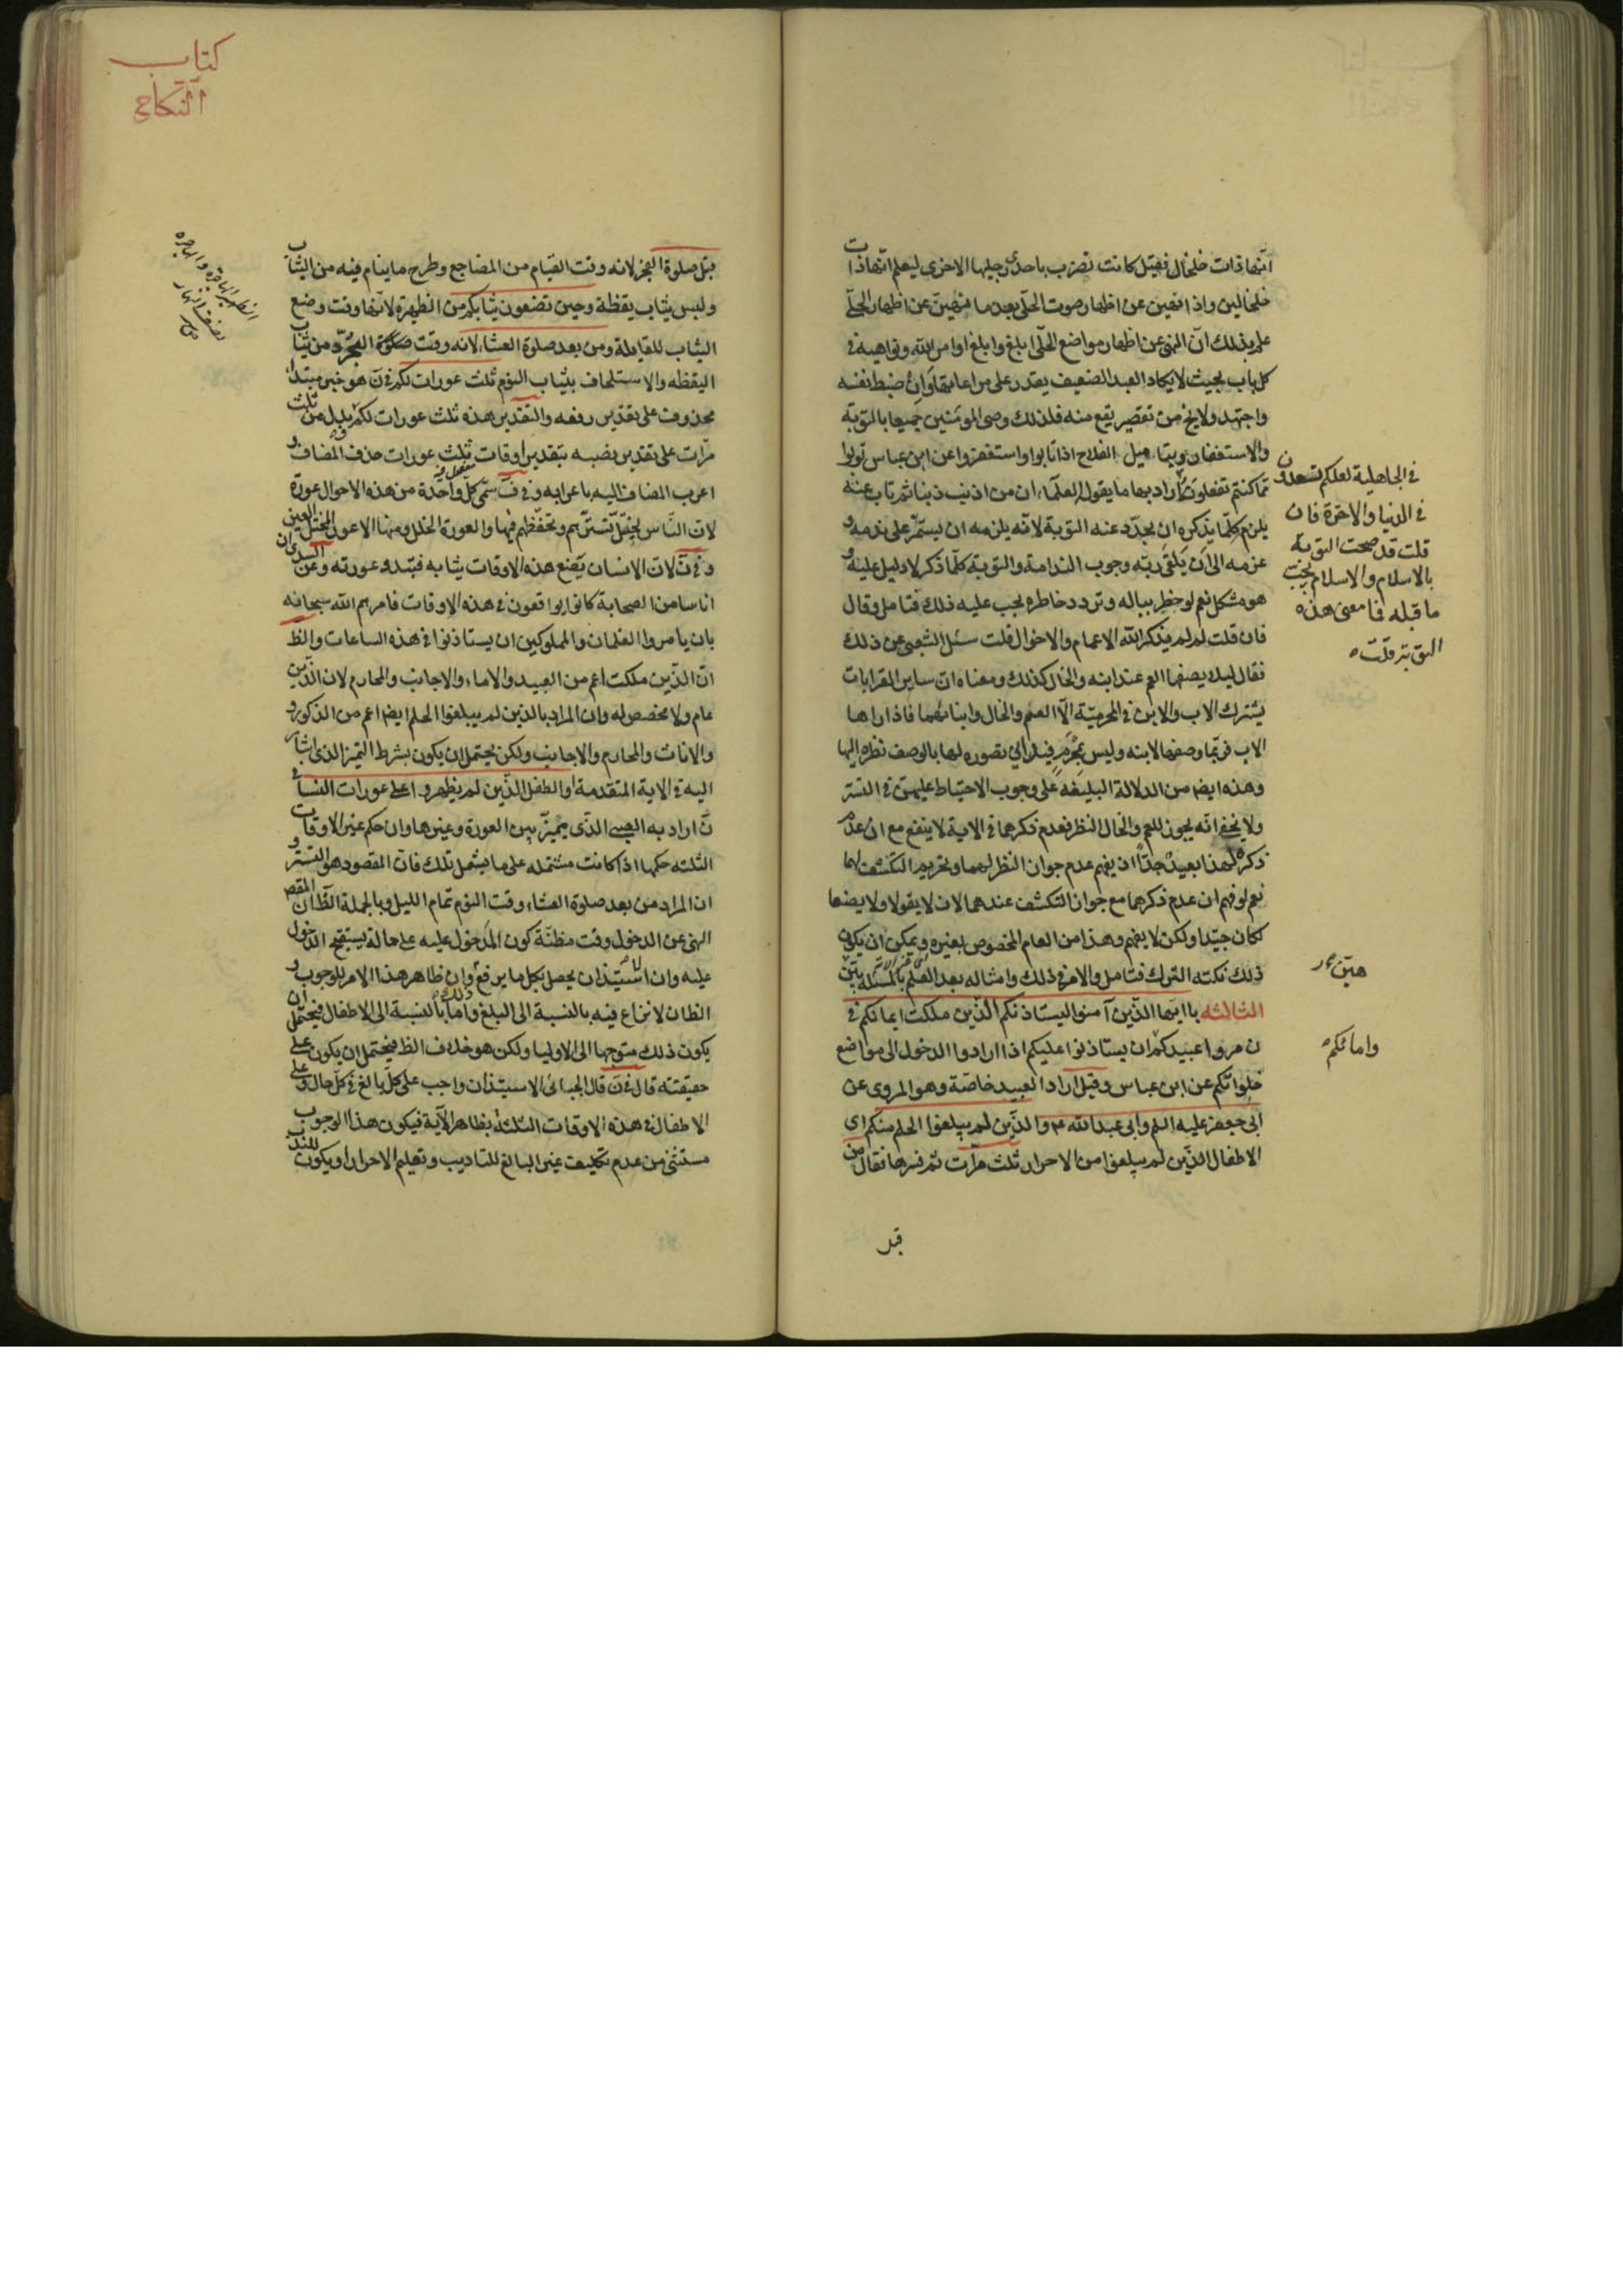 انها ذات خلخال فقيل كانت تضرب باحدى رجليها الاخرى ليعلم انها ذات
خلخالين واذا نهين عن اظهار صوت الحلى بعد ما نهين عن اظهار الحلى
علم بذلك ان النهى عن اظهار مواضع الحلى ابلغ وابلغ اوامر الله ونواهيه فى
كل باب بحيث لا يكاد العبد الضعيف يقدر على مراعاتها وان ضبط نفسه
واجتهد ولا يخ من تقصير يقع منه فلذلك وصى المومنين جميعا بالتوبة
والاستغفار وبتاميل الفلاح اذا تابوا واستغفروا وعن ابن عباس توبوا
مما كنتم تفعلونه
فى الجاهلية لعلكم تسعدون
فى الدنيا والاخرة فان
قلت قد صحت التوبة
بالاسلام والاسلام يجب
ما قبله فما معنى هذه
التوبة قلت
اراد بها ما يقوله العلماء ان من اذنب ذنبا ثم تاب عنه
يلزم كلما يذكره ان يجدد عنه التوبة لانه يلزمه ان يستمر على ندمه و
عزمه الى ان يلقى ربه وجوب الندامة والتوبة كلما ذكر لا دليل عليه و
هو مشكل نعم لو خطر بباله وتردد خاطره يجب عليه ذلك فتامل وقال
فان قلت لم لم يذكر الله الاعمام والاخوال قلت سئل الشعبى عن ذلك
فقال ليلا يصفها العم عند ابنه والخال كذلك ومعناه ان ساير القرابات
يشترك الاب والابن فى المحرمية الا العم والخال وابناهما فاذا راها
الاب فربما وصفها لابنه وليس بمحرم فيدانى تصوره لها بالوصف نظره اليها
وهذا ايضا من الدلالة البليغة على وجوب الاحتياط عليهن فى التستر
ولا يخفى انه يجوز للعم والخال النظر فعدم ذكرهما فى الاية لا ينفع مع ان عدم
ذكره لهذا بعيد جدا اذ يفهم عدم جواز النظر لهما وتحريم التكشف لهما
نعم لو فهم ان عدم ذكرهما مع جواز التكشف عندهما لان لا يقولا ولا يصفا
لكان جيدا ولكن لا يفهم وهذا من العام المخصوص بغيره ويمكن ان يكون
ذلك نكتة الترك فتامل والامر فى ذلك وامثاله بعد العلم بالمسئلة
هين
الثالثه يا ايها الذين آمنوا ليستاذنكم الذين ملكت ايمانكم فى
ن مروا عبيدكم
وامائكم
ان يستاذنوا عليكم اذا ارادوا الدخول الى مواضع
خلواتكم عن ابن عباس وقيل اراد العبيد خاصة وهو المروى عن
ابى جعفر عليه السلم وابى عبدالله ع والذين لم يبلغوا الحلم منكم اى
الاطفال الذين لم يبلغوا من الاحرار ثلث مرات ثم فسرها فقال من
كتاب
النكاح
قبل صلوة الفجر لانه وقت القيام من المضاجع وطرح ما ينام فيه من الثياب
ولبس ثياب يقظة وحين تضعون ثيابكم من الظهيرة لانها وقت وضع
الثياب للقايلة ومن بعد صلوة العشاء لانه وقت التجرد من ثياب
اليقظه والاستلحاف بثياب النوم ثلث عورات لكم فى ن هو خبر مبتداء
محذوف على تقدير رفعه والتقدير هذه ثلث عورات لكم بدل من ثلث
مرات على تقدير نصبه بتقدير اوقات ثلث عورات حذف المضاف و
اعرب المضاف اليه باعرابه وفى ف سمى كل واحدة من هذه الاحوال عورة
لان الناس يختل تسترهم وتحفظهم فيها والعورة الخلل ومنها الاعور المختل العين
وفى ن لان الانسان يضع هذه الاوقات ثيابه فتبدو عورته وعن السدى ان
اناسا من الصحابة كانوا يواقعون فى هذه الاوقات فامرهم الله سبحانه
بان يامروا الغلمان والمملوكين ان يستاذنوا فى هذه الساعات والظ
ان الذين ملكت اعم من العبيد والاماء والاجانب والمحارم لان الذين
عام ولا مخصص له وان المراد بالذين لم يبلغوا الحلم ايضا اعم من الذكور
والاناث والمحارم والاجانب ولكن يحتمل ان يكون بشرط التميز الذى اشار
اليه فى الاية المتقدمة او الطفل الذين لم يظهروا على عورات النساء فى
ن اراد به الصبى الذى يميز بين العورة وغيرها وان حكم غير الاوقات
الثلثه حكمها اذا كانت مشتمله على ما يشمل تلك فان المقصود هو التستر و
ان المراد من بعد صلوة العشاء وقت النوم تمام الليل وبالجملة الظ ان المقص
النهى عن الدخول وقت مظنة كون المدخول عليه على حالة يستقبح الدخول
عليه وان الاستيذان يحصل بكل ما يرفع وان ظاهر هذا الامر للوجوب و
الظان لا نزاع فيه بالنسبة الى البلغ واما بالنسبة الى الاطفال فيحتمل ان
يكون ذلك متوجها الى الاوليا ولكن هو خلاف الظ فيحتمل ان يكون على
حقيقته قال فى ن قال الجبائى الاستيذان واجب على كل بالغ فى كل حال وعلى
الاطفال فى هذه الاوقات الثلثة بظاهر الآية فيكون هذا الوجوب
مستثنى من عدم تكليف غير البالغ للتاديب وتعليم الاحرار او يكون للندب